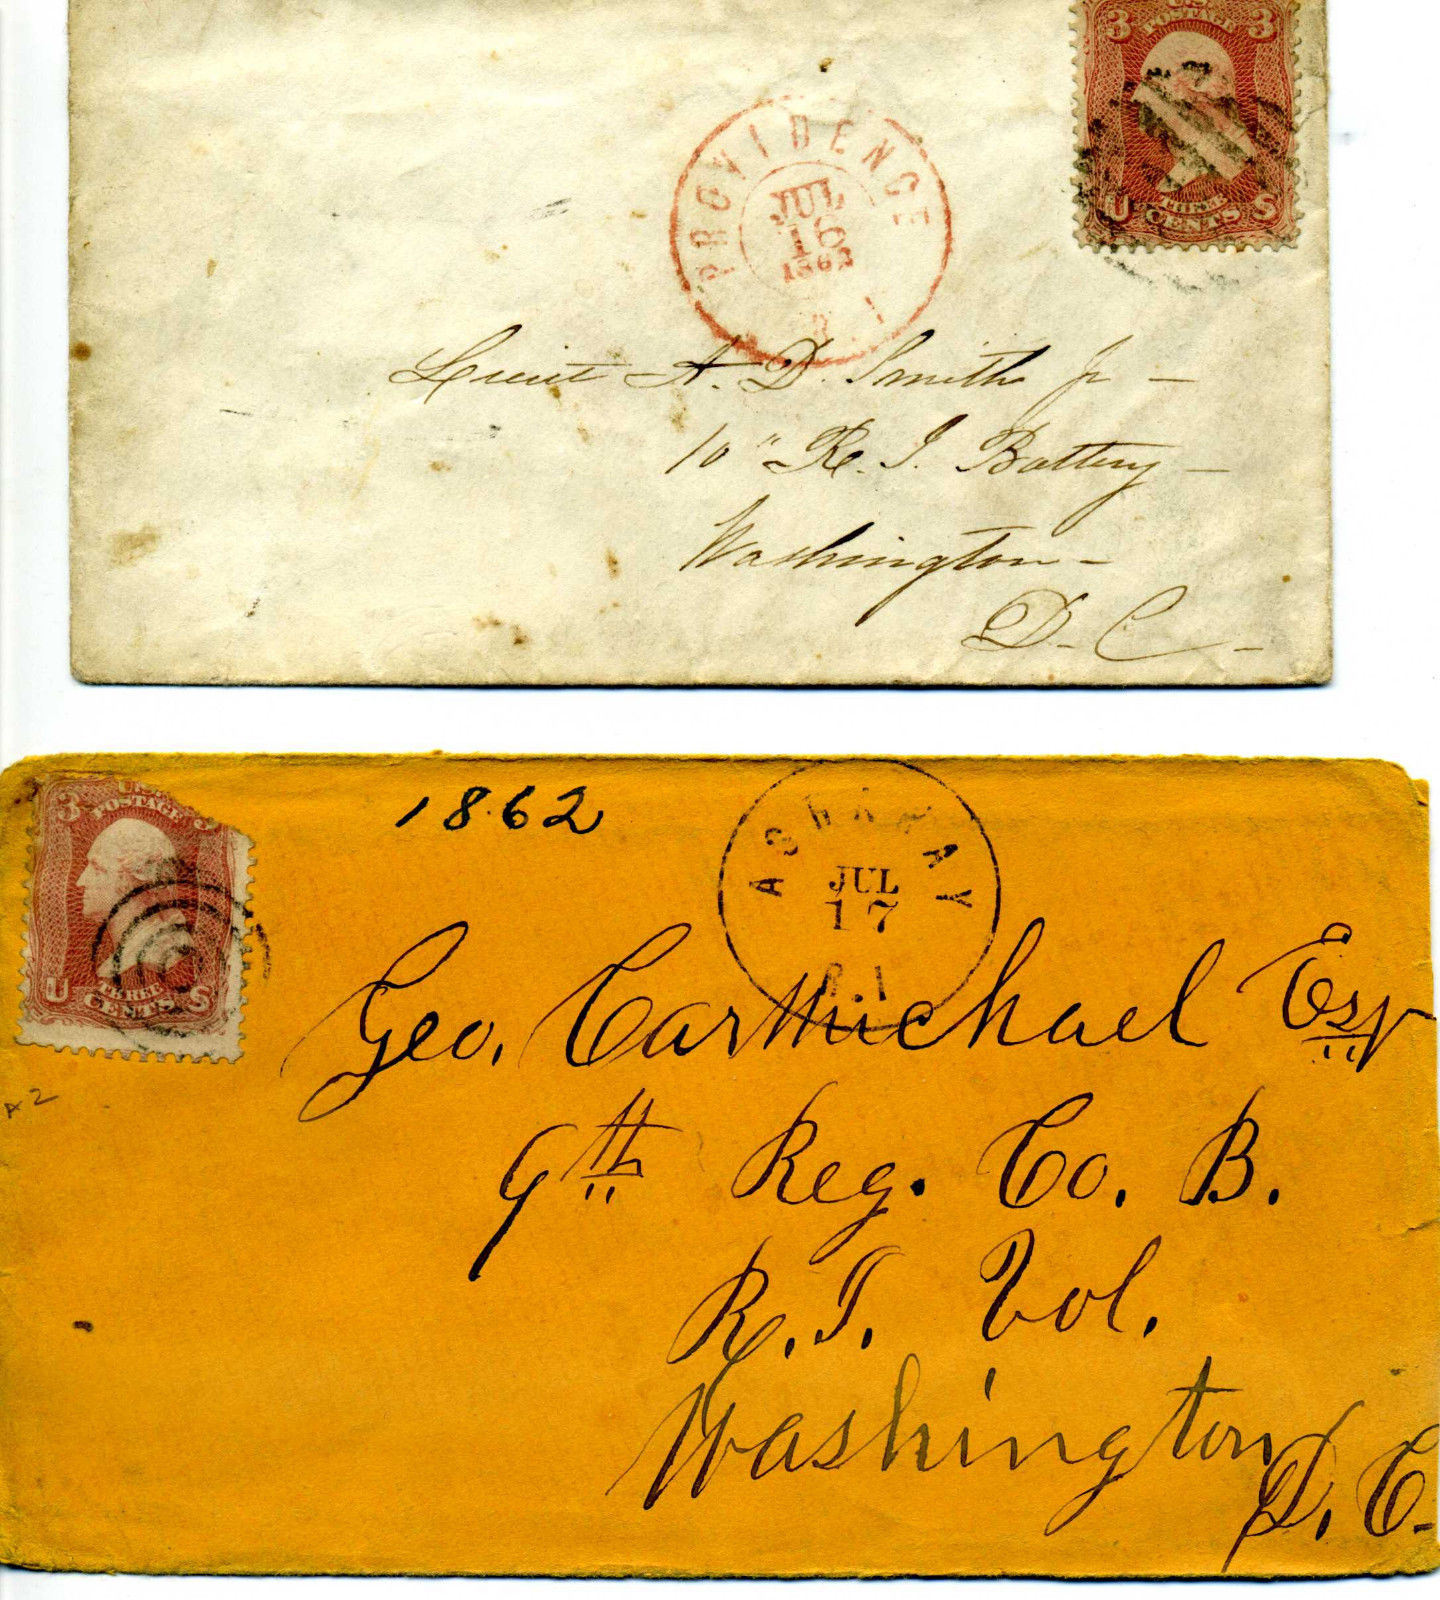 3 U.S. 3
POSTAGE
U THREE S
CENTS
PROVIDENCE
JUL
16
1862
R I
Lieut A. D. Smith Jr -
10" R. I. Battery -
Washington -
D. C. -
3 U.S. 3
POSTAGE
U THREE S
CENTS
1862
ASHAWAY
JUL
17
R.I
Geo. Carmichael Esq
9th Reg. Co. B.
R. I. Vol.
Washington
D. C.
A2